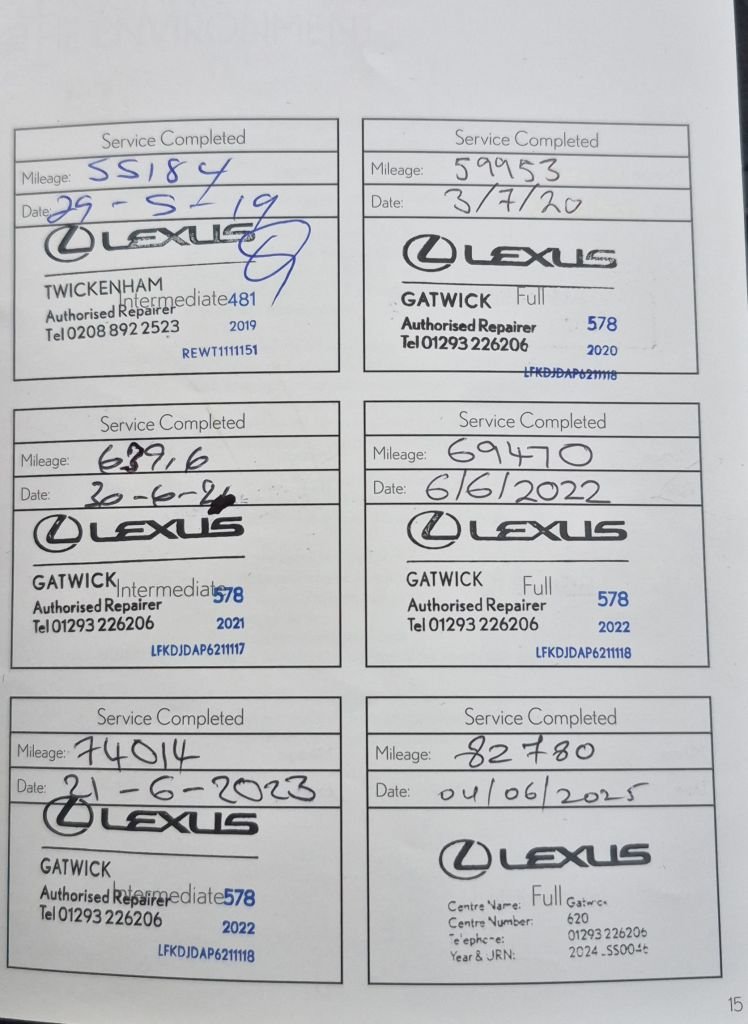 Service Completed
Mileage: 55184
Date: 29-5-19
LEXUS
TWICKENHAM
Intermediate 481
Authorised Repairer
Tel 0208 892 2523
2019
REWT1111151
Service Completed
Mileage: 59953
Date: 3/7/20
LEXUS
GATWICK Full
Authorised Repairer 578
Tel 01293 226206
2020
LFKDJDAP6211118
Service Completed
Mileage: 639,6
Date: 30-6-21
LEXUS
GATWICK
Intermediate 578
Authorised Repairer
Tel 01293 226206 2021
LFKDJDAP6211117
Service Completed
Mileage: 69470
Date: 6/6/2022
LEXUS
GATWICK Full
Authorised Repairer 578
Tel 01293 226206 2022
LFKDJDAP6211118
Service Completed
Mileage: 74014
Date: 21-6-2023
LEXUS
GATWICK
Authorised Repairer Intermediate 578
Tel 01293 226206
2022
LFKDJDAP6211118
Service Completed
Mileage: 82780
Date: 04/06/2025
LEXUS
Full
Centre Name: Gatwick
Centre Number: 620
Telephone: 01293 226206
Year & JRN: 2024
15